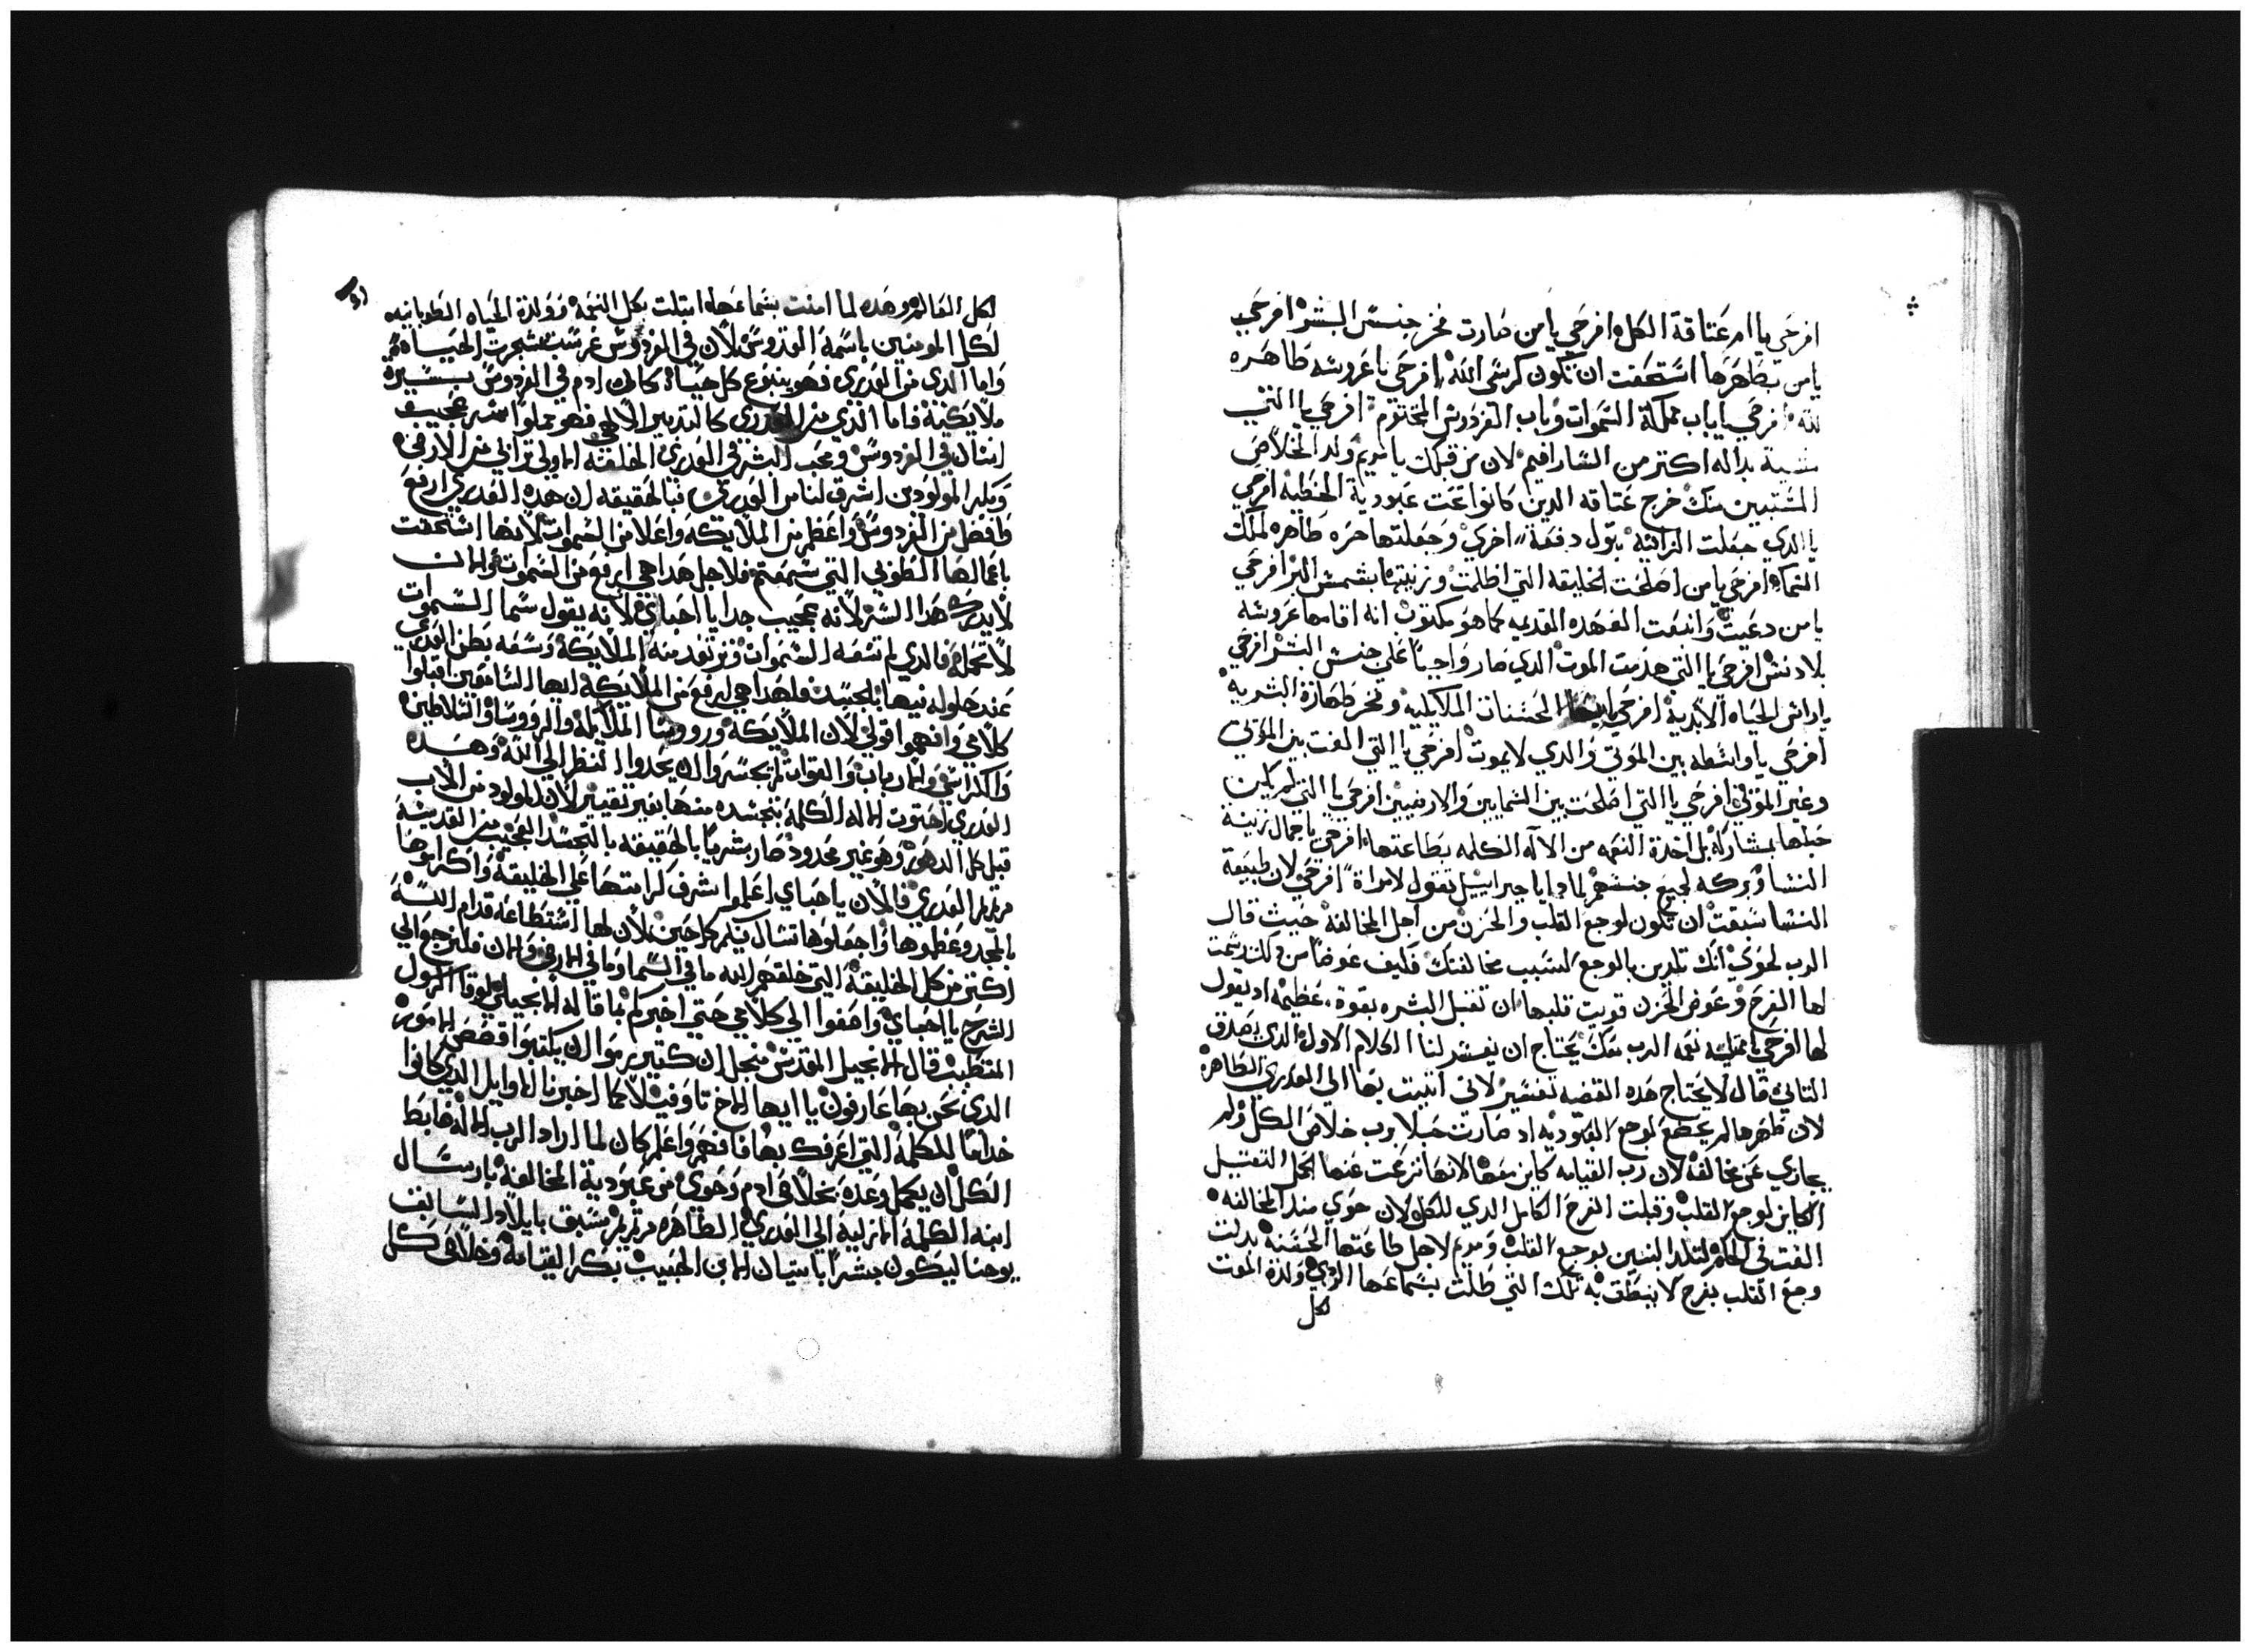 افرحي يا ام عتاقة الكل افرحي يا من صارت فخر جنس البشر افرحي
يا من بطهرها استحقت ان تكون كرسي الله افرحي يا عروسه طاهره
لله افرحي يا باب مملكة السموات وباب الفردوس المختوم افرحي يا التي
شبيهة بداله اكتر من الشارافيم لان من قبلك يا مريم ولد الخلاص
المشتبين منك خرج عتاقه الدين كانوا تحت عبودية الخطيه افرحي
يا الدي جعلت الزانيه بتول دفعة اخري وجعلتها حره طاهره لملك
السماء افرحي يا من اصلحت الخليقه التي اظلمت وزينتها بشمش البر افرحي
يا من دعيت العهده القديمه كما هو مكتوب انه اقامها عروسه
بلا دنس افرحي يا التي هدمت الموت الدي صار واجبا علي جنس البشر افرحي
يا راس الحياه الابدية افرحي الحسنات الملايكيه وفخر طهارة البشريه
افرحي يا واسطه بين الموتي والدي لا يموت افرحي يا التي الفت بين الموتي
وغير الموتي افرحي يا التي اصلحت بين السمايين والارضيين افرحي يا التي لم يكن
حبلها بمشاركة بل اخدة النعمه من الاله الكلمه بطاعتها افرحي يا جمال زينة
النسا وبركه لجميع جنسهم لمادا يا جبراييل تقول لامراة افرحي لان طبيعة
النسا سبقت ان تكون لوجع القلب والحزن من اجل المخالفة حيث قال
الرب لحوي انك تلدين بالوجع لسبب مخالفتك فكيف عوضا من دلك رشمت
لها الفرح وعوض الحزن قويت قلبها ان تقبل البشره بقوة عظيمه اد يقول
لها افرحي يا ممتليه نعمه الرب معك يحتاج ان يفسر لنا الكلام الاول الدي يصدق
التاني قال لا يحتاج هده القصه تفسير لاني اتيت بها الي العدري الطاهره
لان طهرها لم يخضع لوجع العبوديه اد صارت حبلا برب خلاص الكل ولم
يجازي عن مخالفه لان رب القيامه كاين معها لانها نزعت عنها الحمل التقيل
الكاين لوجع القلب وقبلت الفرح الكامل الدي للكل لان حوي مند المخالفه
الفت في الحكم لتلد البنين بوجع القلب ومريم لاجل طاعتها الحسنه بدلت
وجع القلب بفرح لا ينطق به تلك التي ظلت بسماعها الردي ولدة الموت
لكل
لكل العالم وهده لما امنت بسماعها امتلت بكل النعمه وولدة الحياه الطوبانيه
لكل المومنين باسمه القدوس لان في الفردوس غرست شجرت الحياه
واما الدي من العدري فهو ينبوع كل حياة كان ادم في الفردوس بسيرة
ملايكية فاما الدي من العدري كالتدبير الالهي فهو مملوا سر عجيب
انسان في الفردوس ومحب البشر في العدري الخلقه الاولي تراب من الارض
وبكر المولودين اشرق لنا من العدري فبالحقيقه ان هده العدري ارفع
وافضل من الفردوس واعظم من الملايكه واعلا من السموات لانها استحقت
باعمالها الطوبي التي سمعتم فلاجل هدا هي ارفع من السموات
لا يدرك هدا السر لانه عجيب جدا يا احباي لانه يقول سما السموات
لا تحمله فالدي لم تسعه السموات وترتعد منه الملايكة وسعه بطن العدري
عند حلوله فيها بالجسد فلهدا هي ارفع من الملايكة ايها السامعين اقبلوا
كلامي وافهموا قولي لان الملايكه وروسا الملايكه والرووسا والسلاطين
والكراسي والارباب والقوات لم يجسروا ان يحدوا النظر الي الله وهده
العدري احتوت الاله الكلمة بتجسده منها بغير تغيير لان المولود من الاب
قبل كل الدهور وهو غير محدود صار بشريا بالحقيقه بالتجسد العجيب من القديسة
مريم العدري فالان يا احباي اعلموا شرف كرامتها علي الخليقة واكرموها
بالمجد وعظموها واجعلوها تسال فيكم كل حين لان لها استطاعه قدام الله
اكتر من كل الخليقة التي خلقهم الله ما في السما وما في الارض والان فلنرجع الي
الشرح يا احباي واصغوا الي كلامي حتي اخبركم بما قاله الانجيلي لوقا الرسول
المتطبب قال الانجيل المقدس من اجل ان كتيرين راموا ان يكتبوا قصص الامور
الدي نحن بها عارفون يا ايها الاخ تاوفيلا كما اخبرنا الاوايل الدي كانوا
خداما للكلمة التي اعرفك بها فافهم واعلم كان لما اراد الرب الاله ضابط
الكل ان يكمل وعده بخلاص ادم وحوي من عبودية المخالفة بارسال
ابنه الكلمة الازلية الي العدري الطاهره مريم سبق بايلاد السابق
يوحنا ليكون مبشرا باتيان الابن الحبيب بكر القيامة وخلاص كل